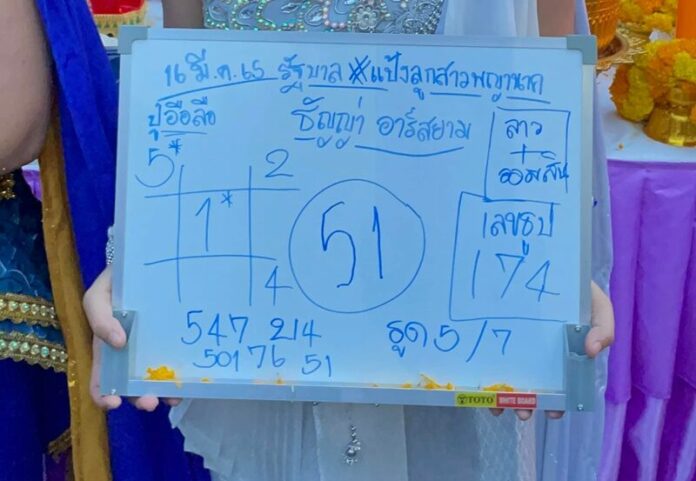 16 มี.ค. 65 รัฐบาล * แป้งลูกสาวพญานาค
ปู่อือลือ
ธัญญ่า อาร์สยาม
ลาว
+
ออมสิน
5* 2
1*
4
51
เลขธูป
174
547 บ/4
501 76 51
รูด 5/7
TOTO WHITE BOARD